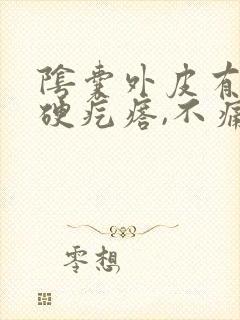 陰囊外皮有
硬疙瘩,不痛
零想